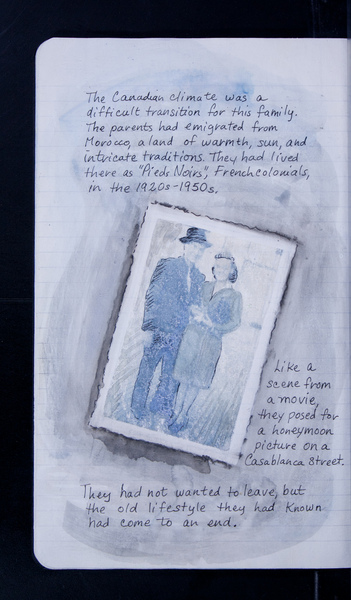 The Canadian climate was a
difficult transition for this family.
The parents had emigrated from
Morocco, a land of warmth, sun, and
intricate traditions. They had lived
there as "Pieds Noirs", French colonials,
in the 1920s-1950s.
Like a
scene from
a movie,
they posed for
a honeymoon
picture on a
Casablanca street.
They had not wanted to leave, but
the old lifestyle they had known
had come to an end.